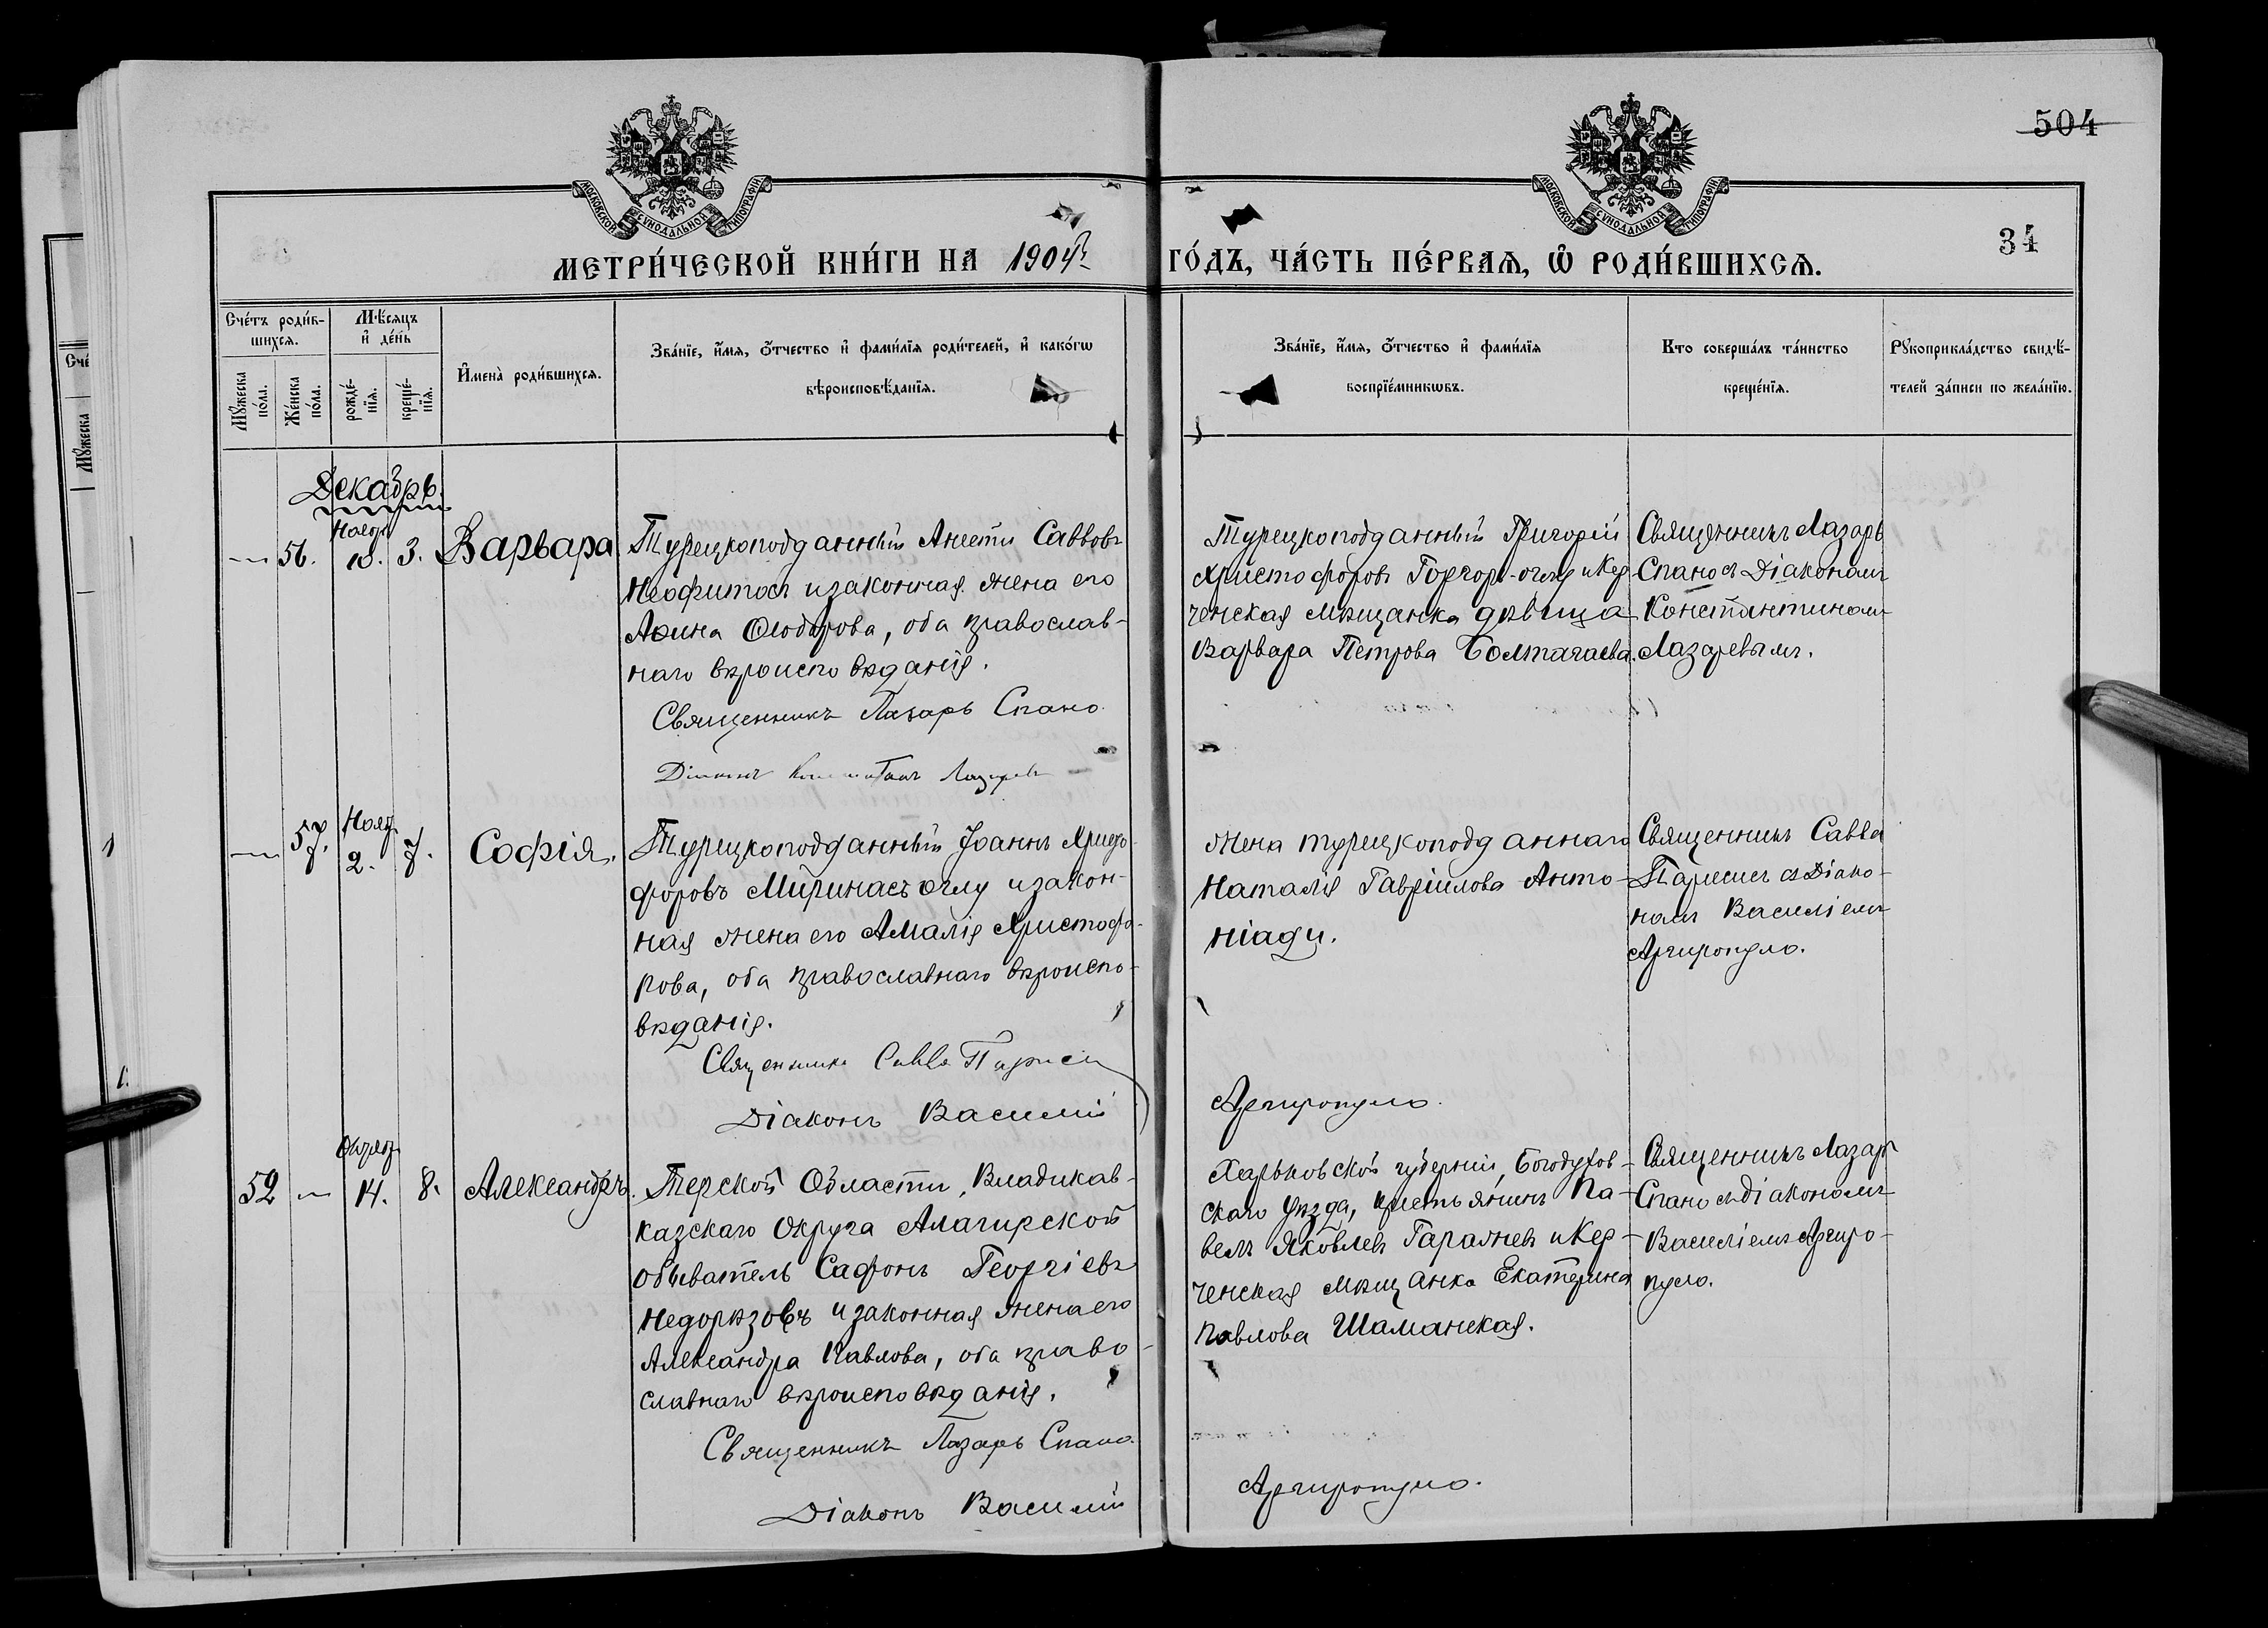 504
34
МОСКОВСКОЙ СѴНОДАЛЬНОЙ ТИПОГРАФІИ
МОСКОВСКОЙ СѴНОДАЛЬНОЙ ТИПОГРАФІИ
МЕТРИ́ЧЕСКОЙ КНИ́ГИ НА 1904й ГО́ДЪ, ЧА́СТЬ ПЕ́РВАЯ, Ѡ РОДИ́ВШИХСЯ.
Сче́тъ роди́в-
шихся.
Мꙋ́жеска по́ла.
Же́нска по́ла.
Мѣ́сяцъ
и҆ де́нь
рожде́-
нїя.
креще́-
нїя.
И҆мена̀ роди́вшихся.
Зва́нїе, и҆́мя, ѻ҆́тчество и҆ фами́лїя роди́телей, и҆ како́гѡ
вѣроисповѣ́данїя.
Зва́нїе, и҆́мя, ѻ҆́тчество и҆ фами́лїя
воспрїе́мникѡвъ.
Кто соверша́лъ та́инство
креще́нїя.
Рꙋкоприкла́дство свидѣ́-
телей за́писи по жела́нїю.
Декабрь.
Нояб.
— 56. 18. 3. Варвара
Турецкоподданный Анести Саввовъ
Неофитовъ и законная жена его
Аѳина Ѳеодорова, оба православ-
наго вѣроисповѣданія.
Священникъ Лазарь Спано
Діаконъ Константинъ Лазаревъ
Турецкоподданный Григорій
Христофоровъ Горгоръ-оглу и Кер-
ченская мѣщанка дѣвица
Варвара Петрова Болтачаева.
Священникъ Лазарь
Спано съ Діакономъ
Константиномъ
Лазаревымъ.
Нояб.
— 57. 2. 7. Софія.
Турецкоподданный Іоаннъ Христо-
форовъ Миринасъ оглу и закон-
ная жена его Амалія Христофо-
рова, оба православнаго вѣроиспо-
вѣданія.
Священникъ Савва Париси
Діаконъ Василій Аргиропуло.
Жена турецкоподданнаго
Наталія Гавріилова Анто-
ніади.
Священникъ Савва
Парисис съ Діако-
номъ Василіемъ
Аргиропуло.
Октяб.
52 — 14. 8. Александръ.
Терской Области, Владикав-
казскаго Округа Алагирской
обыватель Сафонъ Георгіевъ
Недорѣзовъ и законная жена его
Александра Павлова, оба право-
славнаго вѣроисповѣданія.
Священникъ Лазарь Спано.
Діаконъ Василій Аргиропуло.
Харьковской губерніи, Богодухов-
скаго уѣзда, крестьянинъ Па-
велъ Яковлевъ Гаражиев и Кер-
ченская мѣщанка Екатерина
Павлова Шаманская.
Священникъ Лазарь
Спано съ діакономъ
Василіемъ Аргиро-
пуло.